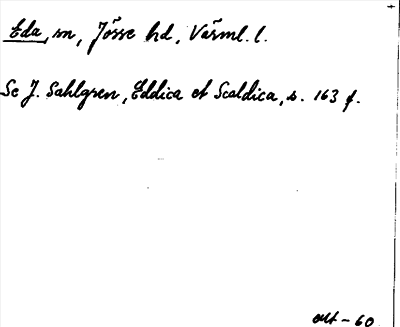 Eda, sn, Jösse hd, Värml. l.
Se J. Sahlgren, Eddica et Scaldica, s. 163 f.
- 60